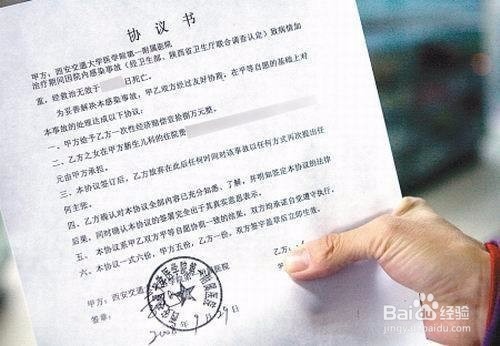 协议书
甲方：西安交通大学医学院第一附属医院
治疗期间因院内感染事故（经卫生部、陕西省卫生厅联合调查认定）致病情加
重，经救治无效于 日死亡。
为妥善解决本感染事故，甲乙双方经过友好协商，在平等自愿的基础上对
本事故的处理达成以下协议：
一、甲方给予乙方一次性经济赔偿壹拾捌万元整。
二、乙方之女在甲方新生儿科的住院费
元由甲方承担。
三、本协议签订后，乙方放弃在此后任何时间对该事故以任何方式再次提出任
何主张。
四、乙方确认对本协议全部内容已充分知悉、了解，并明知签定本协议的法律
后果，同时确认本协议的签署完全出于其真实意思表示。
五、本协议系甲乙双方平等自愿协商一致的结果，双方均承诺自觉遵守执行。
六、本协议一式六份，甲方五份，乙方一份，双方签字盖章后立即生效。
甲方：西安交通大学医学院第一附属医院
乙方：
签章：
2008 9 29
Bai 经验
jingyan.baidu.com